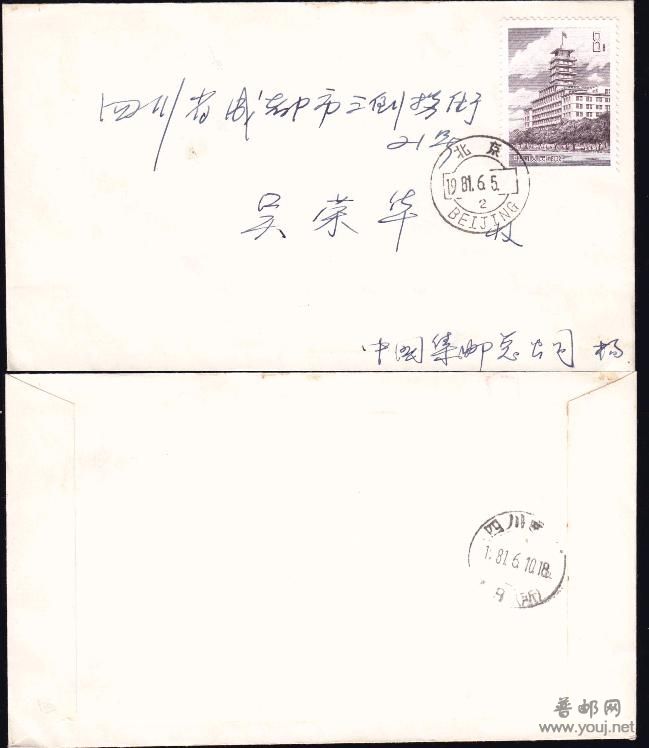 四川省成都市三倒拐街
21号
吴荣华 收
中国集邮总公司 杨
8分
北京
1981.6.5.
2
BEIJING
四川
1.81.6.10.18
普邮网
www.youj.net